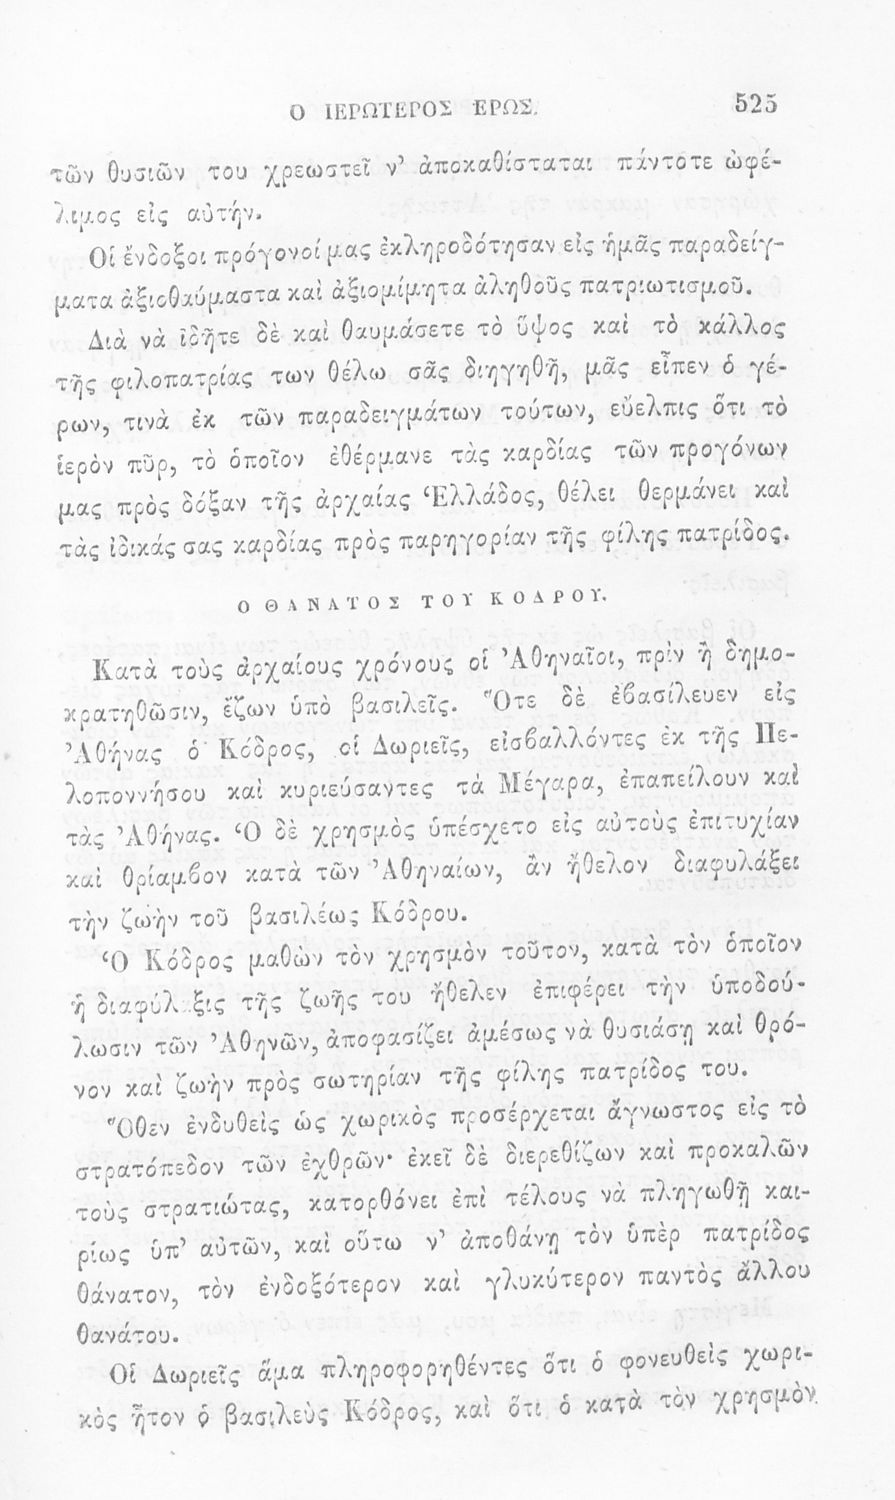 Ο ΙΕΡΩΤΕΡΟΣ ΕΡΩΣ. 525
τῶν θυσιῶν του χρεωστεῖ ν’ ἀποκαθίσταται πάντοτε ὠφέ-
λιμος εἰς αὐτήν.
Οἱ ἔνδοξοι πρόγονοί μας ἐκληροδότησαν εἰς ἡμᾶς παραδείγ-
ματα ἀξιοθαύμαστα καὶ ἀξιομίμητα ἀληθοῦς πατριωτισμοῦ.
Διὰ νὰ ἰδῆτε δὲ καὶ θαυμάσετε τὸ ὕψος καὶ τὸ κάλλος
τῆς φιλοπατρίας των θέλω σᾶς διηγηθῆ, μᾶς εἶπεν ὁ γέ-
ρων, τινὰ ἐκ τῶν παραδειγμάτων τούτων, εὔελπις ὅτι τὸ
ἱερὸν πῦρ, τὸ ὁποῖον ἐθέρμανε τὰς καρδίας τῶν προγόνων
μας πρὸς δόξαν τῆς ἀρχαίας Ἑλλάδος, θέλει θερμάνει καὶ
τὰς ἰδικάς σας καρδίας πρὸς παρηγορίαν τῆς φίλης πατρίδος.
Ο ΘΑΝΑΤΟΣ ΤΟΥ ΚΟΔΡΟΥ.
Κατὰ τοὺς ἀρχαίους χρόνους οἱ Ἀθηναῖοι, πρὶν ἢ δημο-
κρατηθῶσιν, ἔζων ὑπὸ βασιλεῖς. Ὅτε δὲ ἐβασίλευεν εἰς
Ἀθήνας ὁ Κόδρος, οἱ Δωριεῖς, εἰσβαλλόντες ἐκ τῆς Πε-
λοποννήσου καὶ κυριεύσαντες τὰ Μέγαρα, ἐπαπείλουν καὶ
τὰς Ἀθήνας. Ὁ δὲ χρησμὸς ὑπέσχετο εἰς αὐτοὺς ἐπιτυχίαν
καὶ θρίαμβον κατὰ τῶν Ἀθηναίων, ἂν ἤθελον διαφυλάξει
τὴν ζωὴν τοῦ βασιλέως Κόδρου.
Ὁ Κόδρος μαθὼν τὸν χρησμὸν τοῦτον, κατὰ τὸν ὁποῖον
ἡ διαφύλαξις τῆς ζωῆς του ἤθελεν ἐπιφέρει τὴν ὑποδού-
λωσιν τῶν Ἀθηνῶν, ἀποφασίζει ἀμέσως νὰ θυσιάσῃ καὶ θρό-
νον καὶ ζωὴν πρὸς σωτηρίαν τῆς φίλης πατρίδος του.
Ὅθεν ἐνδυθεὶς ὡς χωρικὸς προσέρχεται ἄγνωστος εἰς τὸ
στρατόπεδον τῶν ἐχθρῶν· ἐκεῖ δὲ διερεθίζων καὶ προκαλῶν
τοὺς στρατιώτας, κατορθόνει ἐπὶ τέλους νὰ πληγωθῇ και-
ρίως ὑπ’ αὐτῶν, καὶ οὕτω ν’ ἀποθάνῃ τὸν ὑπὲρ πατρίδος
θάνατον, τὸν ἐνδοξότερον καὶ γλυκύτερον παντὸς ἄλλου
θανάτου.
Οἱ Δωριεῖς ἅμα πληροφορηθέντες ὅτι ὁ φονευθεὶς χωρι-
κὸς ἦτον ὁ βασιλεὺς Κόδρος, καὶ ὅτι ὁ κατὰ τὸν χρησμὸν